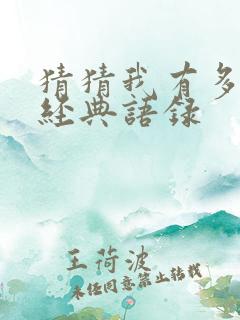 猜猜我有多
經典語錄
王荷波
未经同意禁止转载